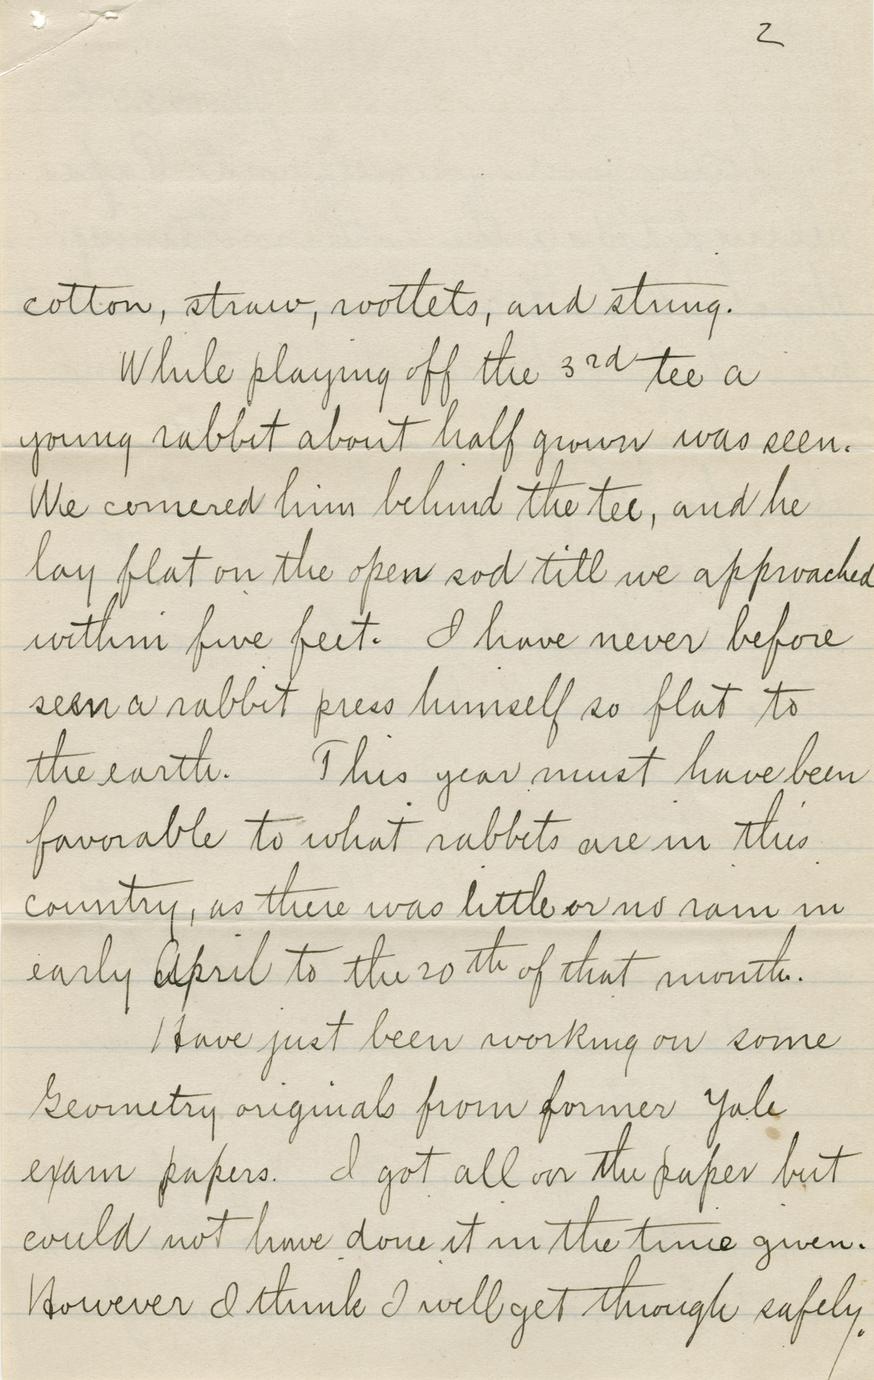 2
cotton, straw, rootlets, and string.
While playing off the 3rd tee a
young rabbit about half grown was seen.
We cornered him behind the tee, and he
lay flat on the open sod till we approached
within five feet. I have never before
seen a rabbit press himself so flat to
the earth. This year must have been
favorable to what rabbits are in this
country, as there was little or no rain in
early April to the 20th of that month.
Have just been working on some
Geometry originals from former Yale
exam papers. I got all on the paper but
could not have done it in the time given.
However I think I will get through safely.